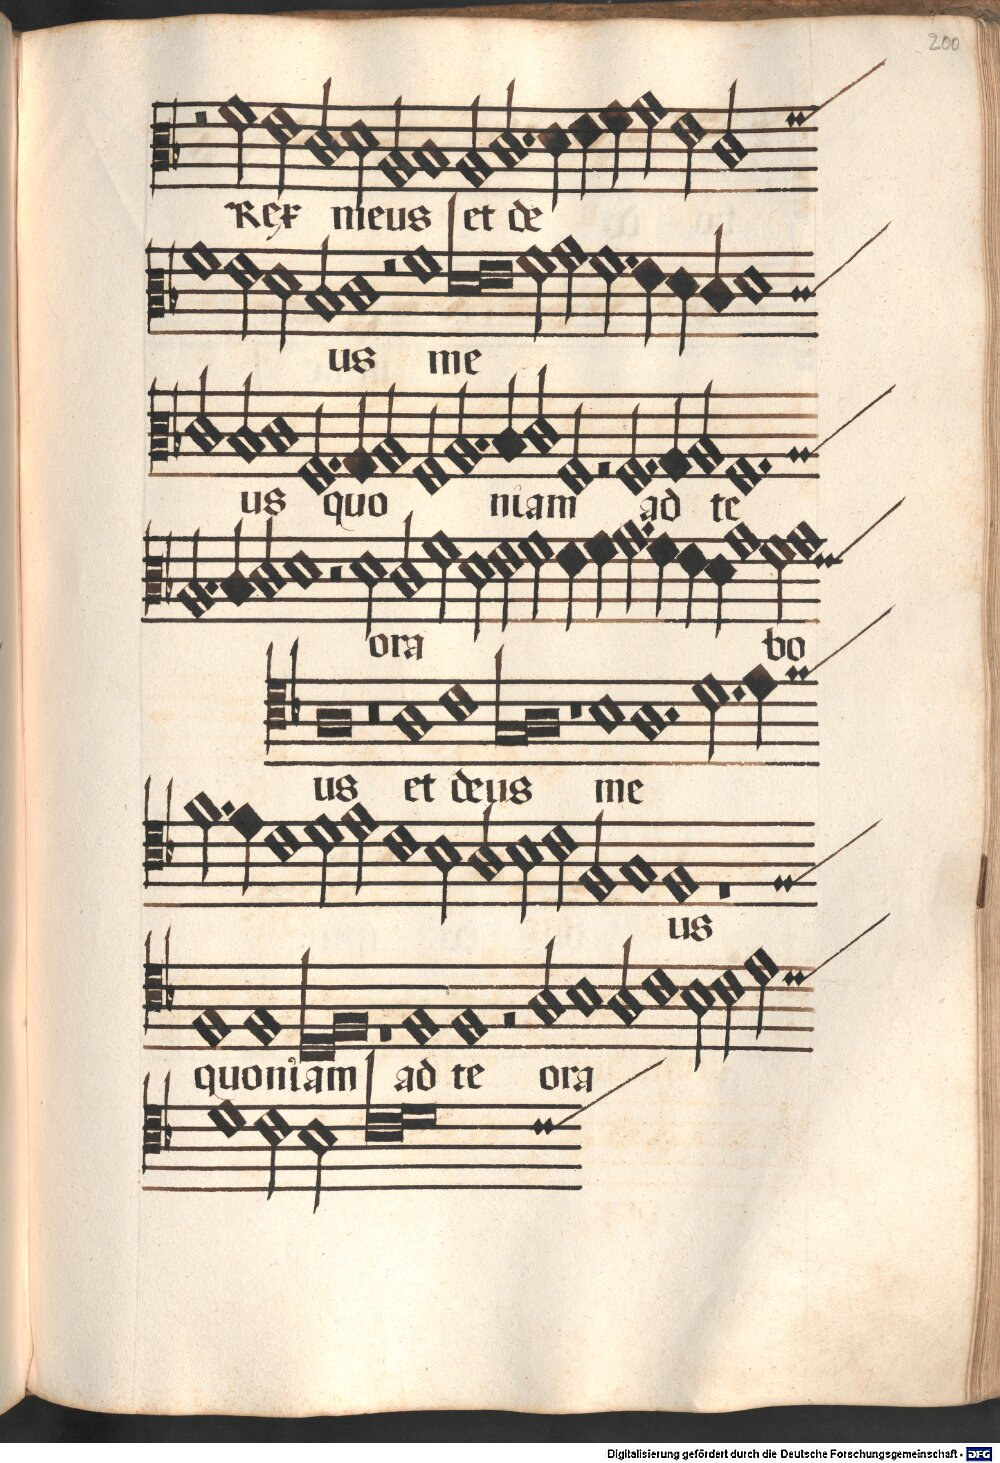 200
Rex meus et de
us me
us quo niam ad te
ora bo
us et deus me
us
quoniam ad te ora
Digitalisierung gefördert durch die Deutsche Forschungsgemeinschaft - DFG